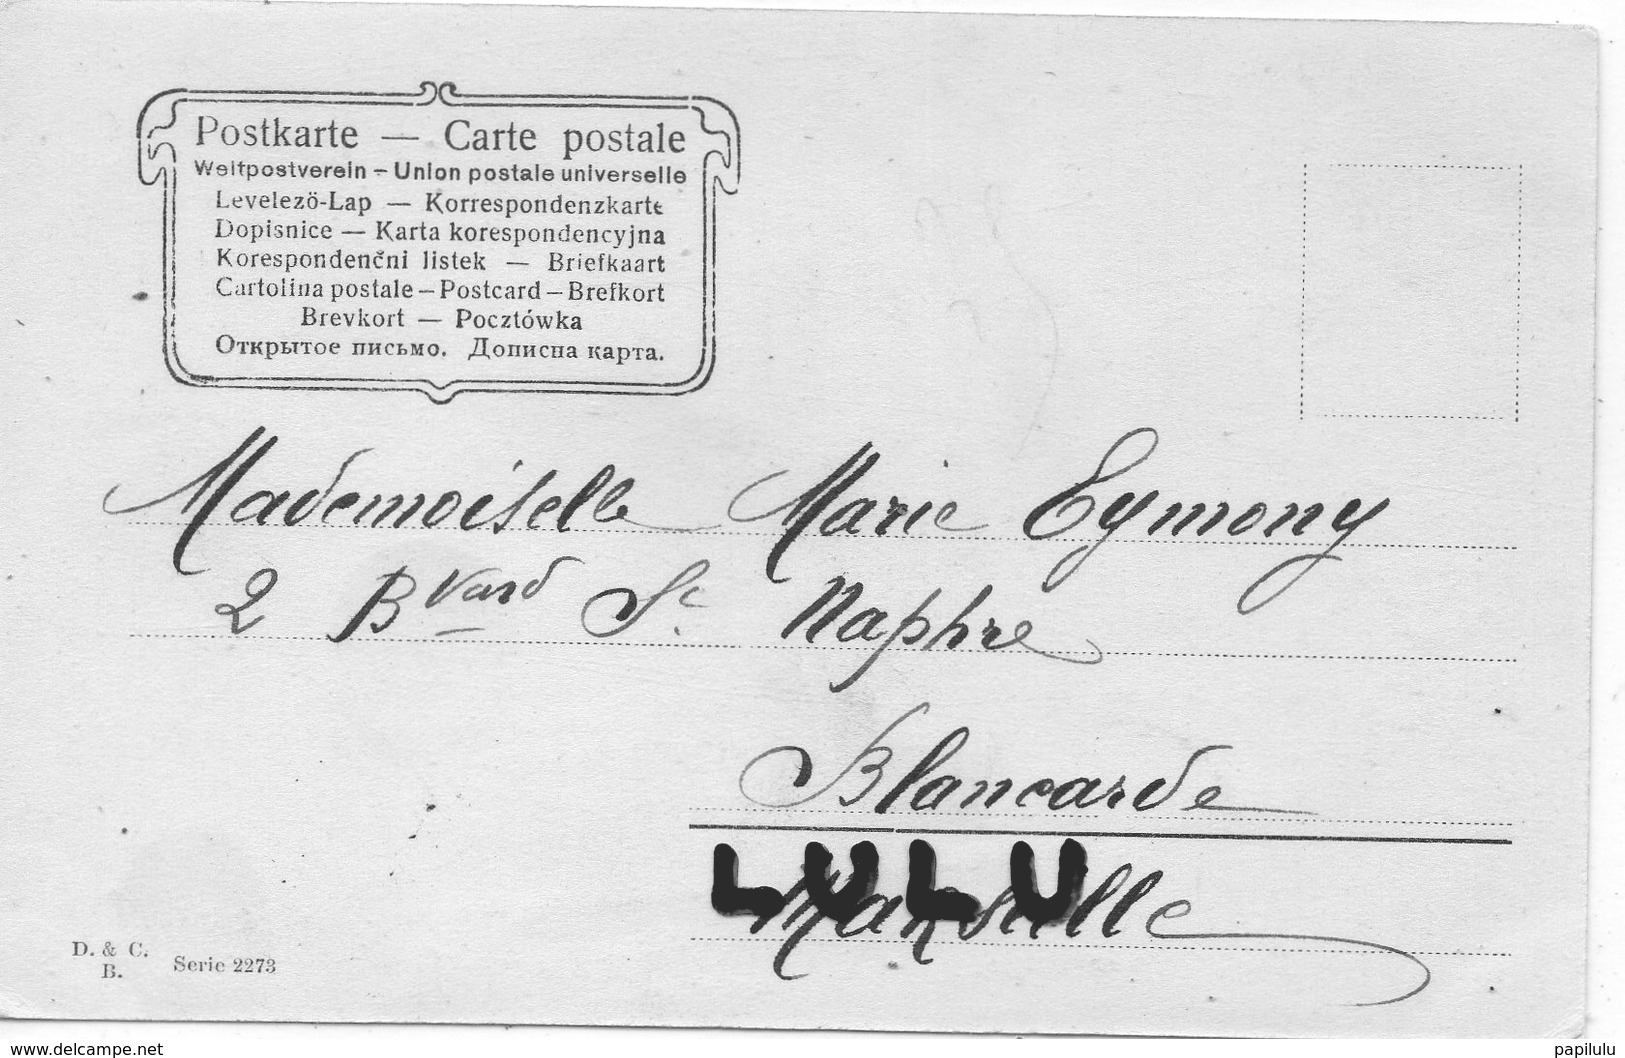 Postkarte — Carte postale
Weltpostverein – Union postale universelle
Levelezö-Lap — Korrespondenzkarte
Dopisnice — Karta korespondencyjna
Korespondenčni listek — Briefkaart
Cartolina postale – Postcard – Brefkort
Brevkort — Pocztówka
Открытое письмо. Дописна карта.
Mademoiselle Marie Eymony
2 Bvard St. Naphre
Blancarde
LULU
Marseille
D. & C.
B. Serie 2273
www.delcampe.net
papilulu